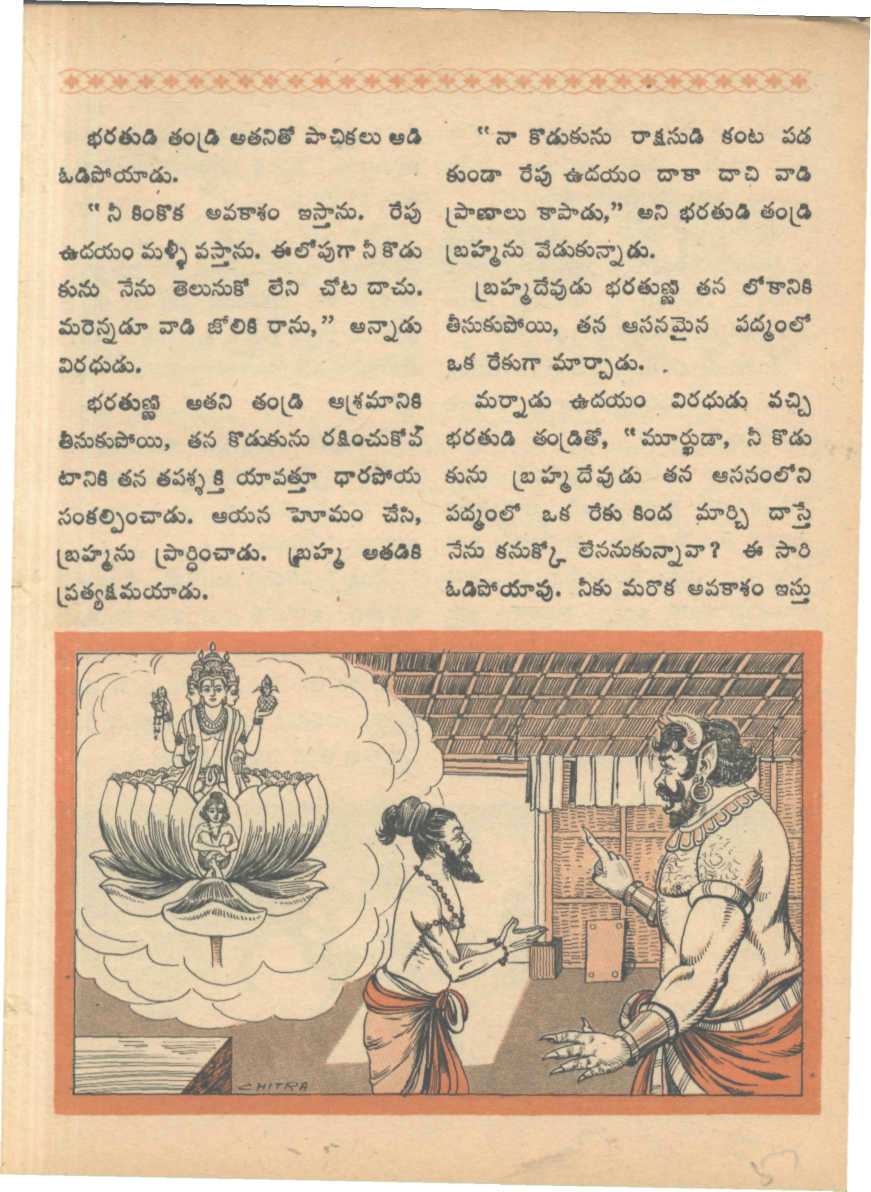 భరతుడి తండ్రి అతనితో పాచికలు ఆడి
ఓడిపోయాడు.
“నీ కింకొక అవకాశం ఇస్తాను. రేపు
ఉదయం మళ్ళీ వస్తాను. ఈలోపుగా నీ కొడు
కును నేను తెలుసుకో లేని చోట దాచు.
మరెన్నడూ వాడి జోలికి రాను,” అన్నాడు
విరధుడు.
భరతుణ్ణి అతని తండ్రి ఆశ్రమానికి
తీసుకుపోయి, తన కొడుకును రక్షించుకోవ
టానికి తన తపశ్శక్తి యావత్తూ ధారపోయ
సంకల్పించాడు. ఆయన హెూమం చేసి,
బ్రహ్మను ప్రార్థించాడు. బ్రహ్మ అతడికి
ప్రత్యక్షమయాడు.
“నా కొడుకును రాక్షసుడి కంట పడ
కుండా రేపు ఉదయం దాకా దాచి వాడి
ప్రాణాలు కాపాడు,” అని భరతుడి తండ్రి
బ్రహ్మను వేడుకున్నాడు.
బ్రహ్మదేవుడు భరతుణ్ణి తన లోకానికి
తీసుకుపోయి, తన ఆసనమైన పద్మంలో
ఒక రేకుగా మార్చాడు.
మర్నాడు ఉదయం విరధుడు వచ్చి
భరతుడి తండ్రితో, “మూర్ఖుడా, నీ కొడు
కును బ్రహ్మదేవుడు తన ఆసనంలోని
పద్మంలో ఒక రేకు కింద మార్చి దాస్తే
నేను కనుక్కో లేననుకున్నావా? ఈ సారి
ఓడిపోయావు. నీకు మరొక అవకాశం ఇస్తు
CHITRA